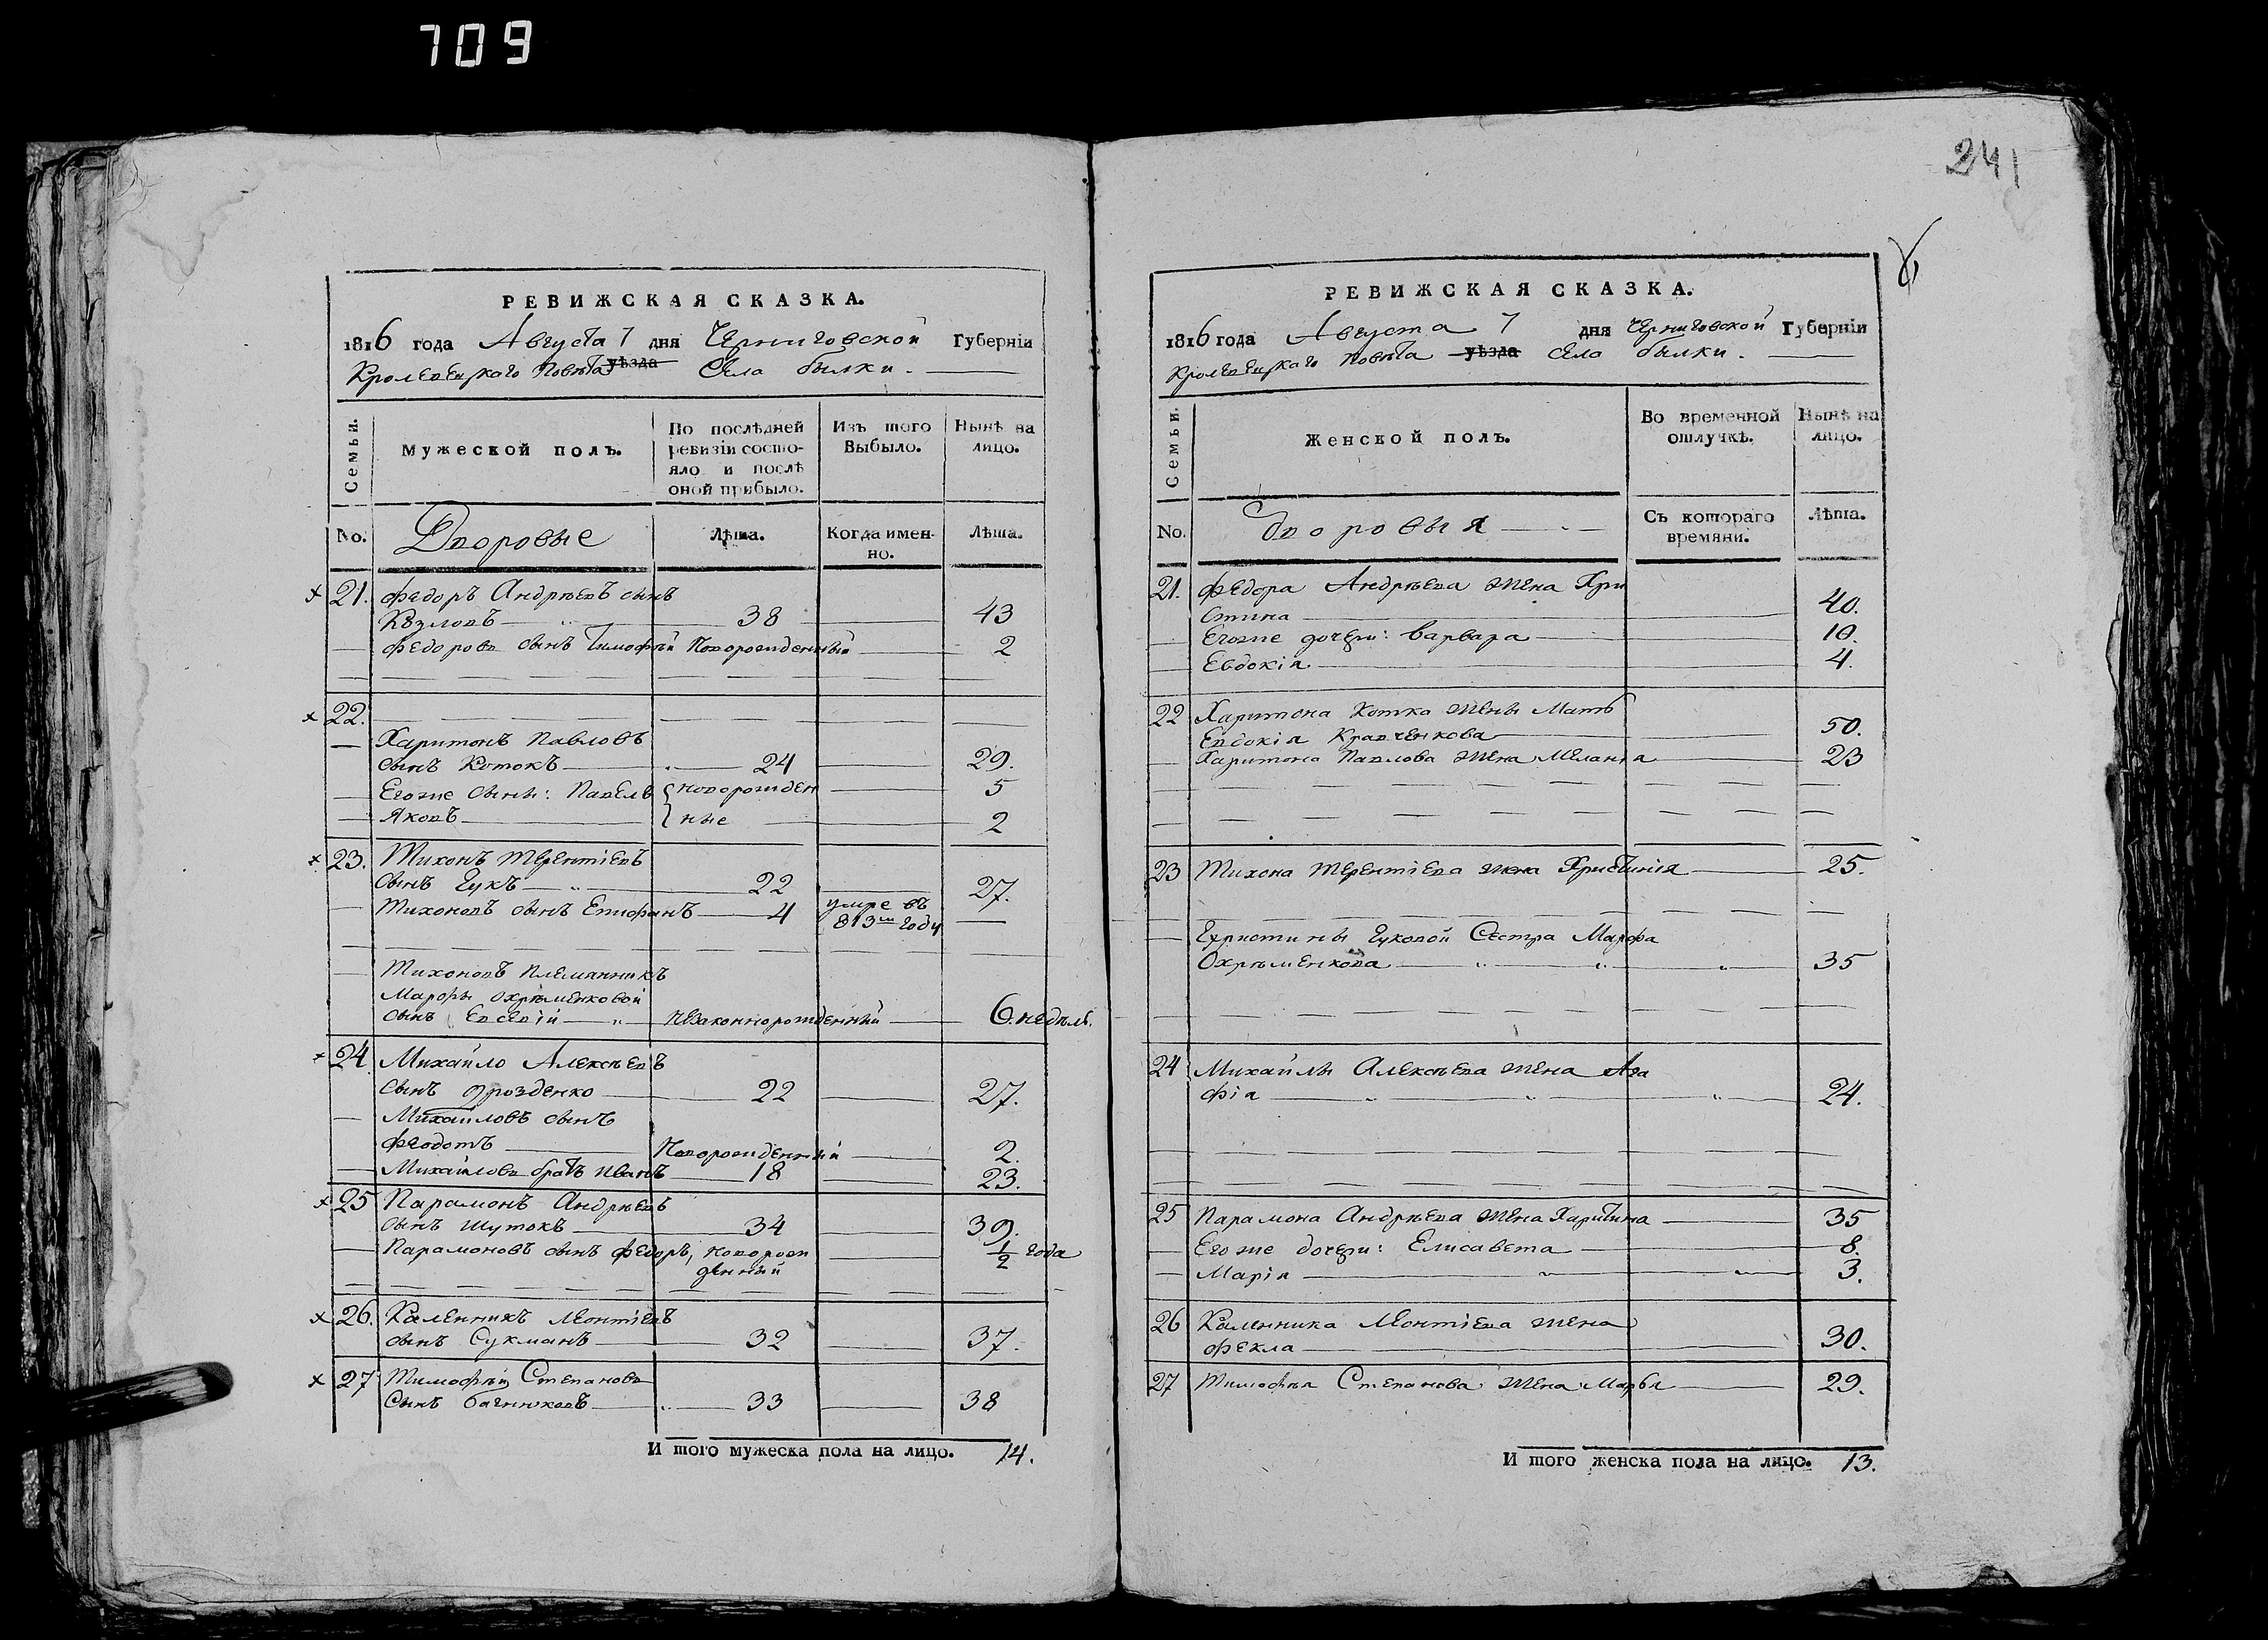 709
241
РЕВИЖСКАЯ СКАЗКА.
1816 года Августа 7 дня Черниговской Губерніи
Кролевецкаго Повѣта уѣзда Села былки.
Семьи.
Мужеской полъ.
По послѣдней ревизіи состо-
яло и послѣ
оной прибыло.
Изъ того Выбыло.
Нынѣ на лицо.
No.
Дворовые
Лѣта.
Когда имен-
но.
Лѣта.
21. Федоръ Андрѣевъ сынъ
Козловъ 38 43
Федоровъ сынъ Тимофѣй Новорожденный 2
22.
Харитонъ Павловъ
сынъ Котокъ 24 29.
Егоже сыны: Павелъ новорожден 5
Яковъ ные 2
23. Тихонъ Терентіевъ
сынъ Гукъ 22 27.
Тихоновъ сынъ Епифанъ 4 умре въ
813м году
Тихоновъ Племянникъ
Марфы Охрѣменковой
сынъ Евсевій незаконнорожденный 6. недѣль.
24 Михайло Алексѣевъ
сынъ Дрозденко 22 27.
Михайловъ сынъ
Феодотъ Новорожденный 2.
Михайловъ братъ Иванъ 18 23.
25 Парамонъ Андрѣевъ
сынъ Шутокъ 34 39.
Парамоновъ сынъ Федоръ, новорож ½ года
денный
26. Каленникъ Леонтіевъ
сынъ Сукманъ 32 37.
27 Тимофѣй Степановъ
Сынъ 33 38
И того мужеска пола на лицо. 14.
РЕВИЖСКАЯ СКАЗКА.
1816 года Августа 7 дня Черниговской Губерніи
Кролевецкаго Повѣта уѣзда Села былки.
Семьи.
Женской полъ.
Во временной отлучкѣ.
Нынѣ на лицо.
No.
Дворовыя
Съ котораго
времяни.
Лѣта.
21. Федора Андрѣева жена Хри
стина 40.
Егоже дочери: Варвара 10.
Евдокія 4.
22 Харитона Котка жены Мать
Евдокія Кравченкова 50.
Харитона Павлова жена Меланія 23
23 Тихона Терентіева жена Христинія 25.
Христины Гуковой Сестра Марфа
Охрѣменкова 35
24 Михайлы Алексѣева жена Ага
фія 24.
25 Парамона Андрѣева жена Харитина 35
Егоже дочери: Елисавета 8.
Марія 3.
26 Каленника Леонтіева жена
Фекла 30.
27 Тимофѣя Степанова жена Марья 29.
И того женска пола на лицо. 13.